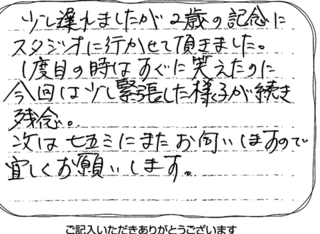 少し遅れましたが2歳の記念に
スタジオに行かせて頂きました。
1度目の時はすぐに笑えたのに
今回は少し緊張した様子が続き
残念。
次は七五三にまたお伺いしますので
宜しくお願いします。
ご記入いただきありがとうございます